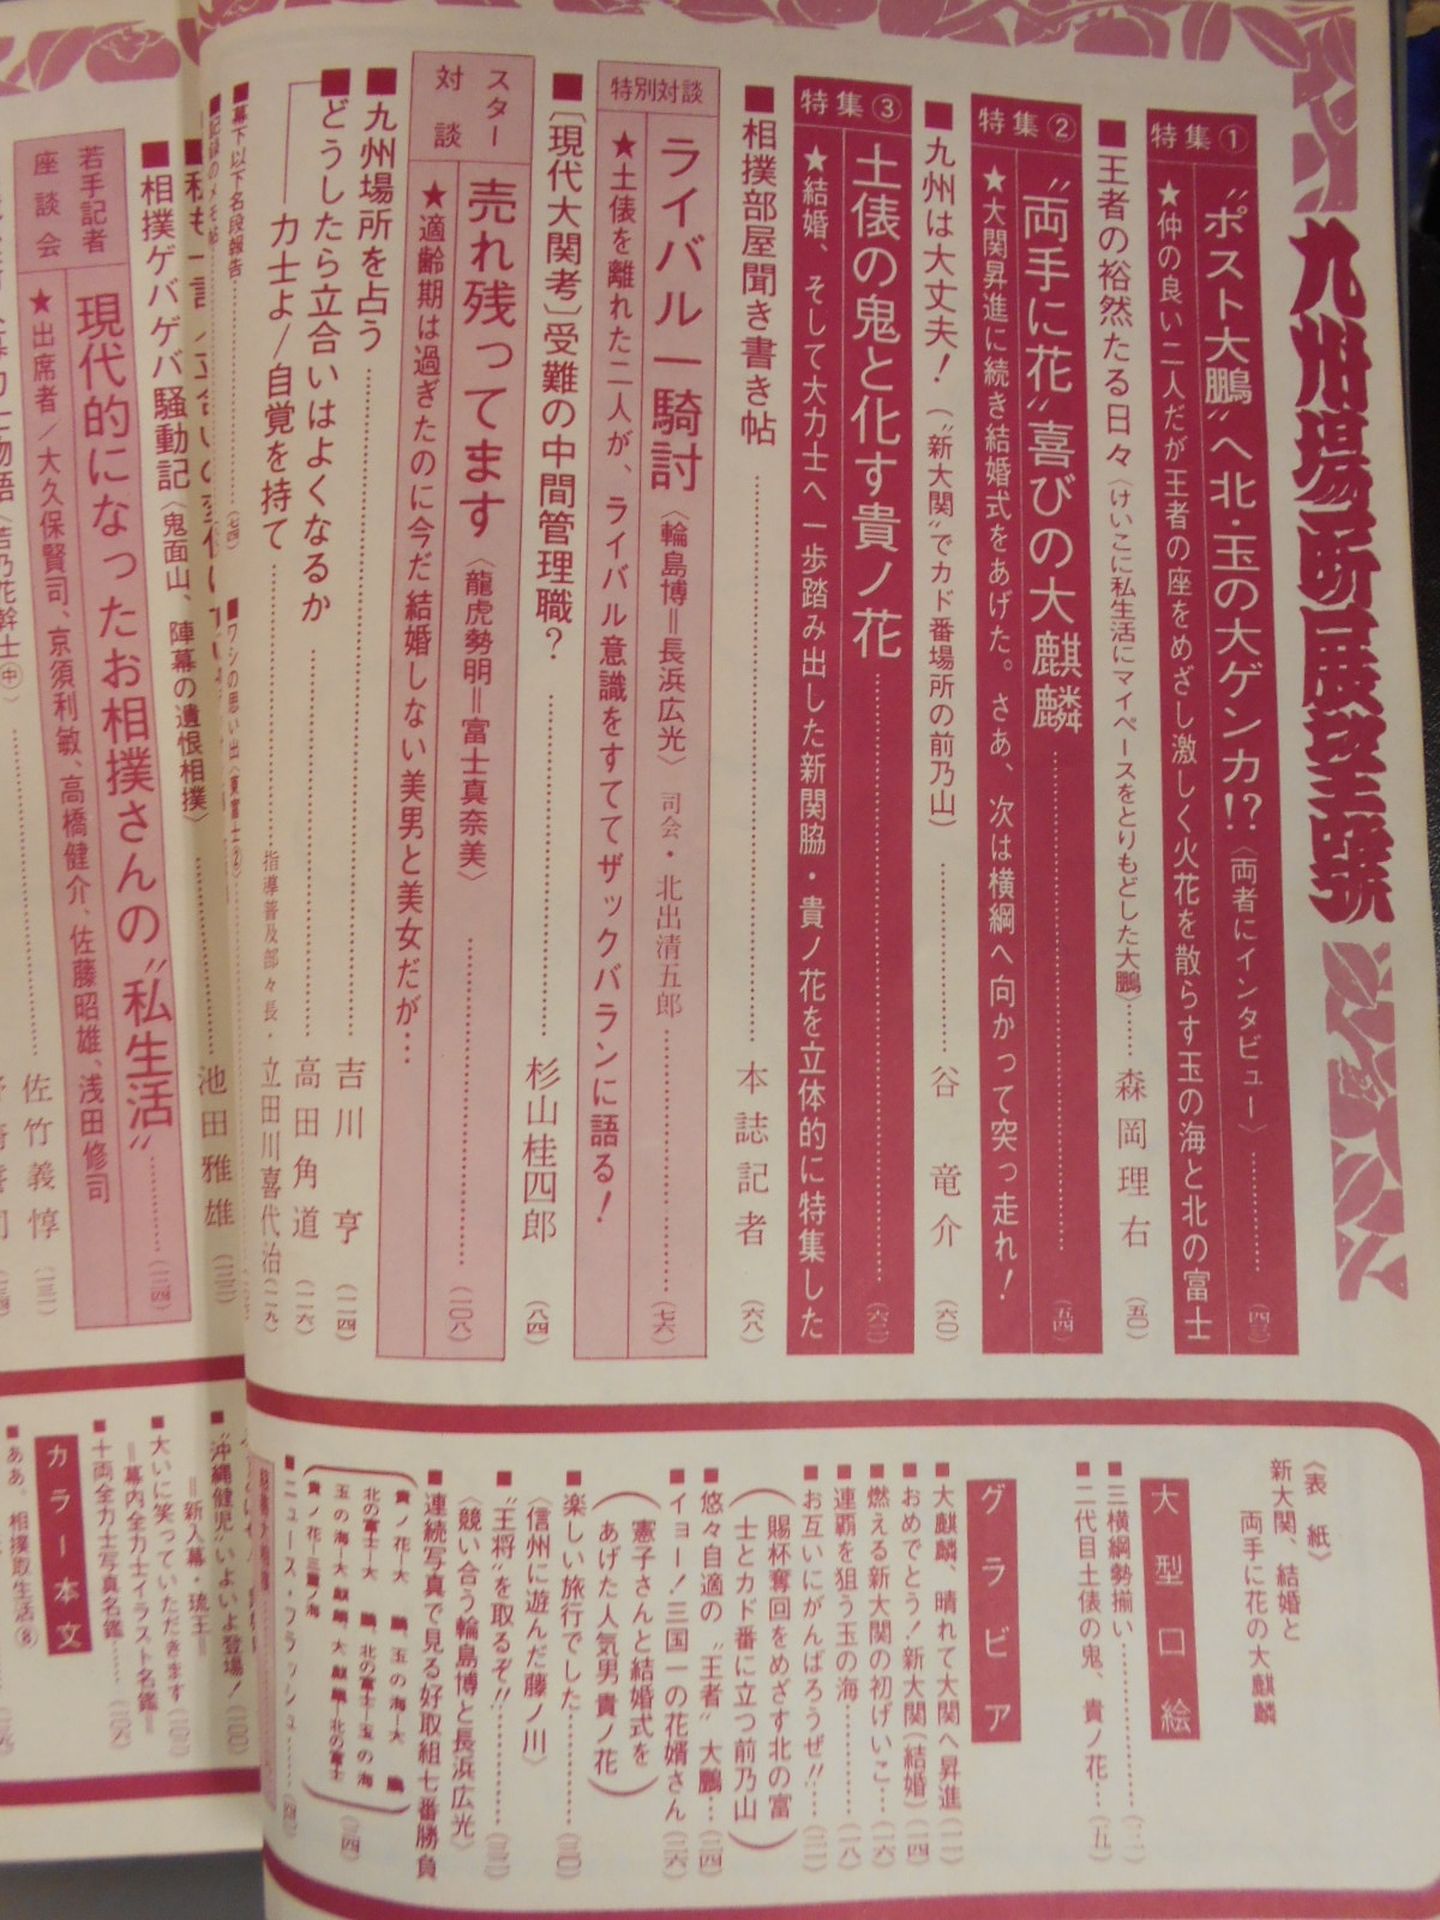 九州場所展望號
特集①
“ポスト大鵬”へ北・玉の大ゲンカ!?〈両者にインタビュー〉…………(四三)
★仲の良い二人だが王者の座をめざし激しく火花を散らす玉の海と北の富士
■王者の裕然たる日々〈けいこに私生活にマイペースをとりもどした大鵬〉……森岡理右(五〇)
特集②
“両手に花”喜びの大麒麟…………(五四)
★大関昇進に続き結婚式をあげた。さあ、次は横綱へ向かって突っ走れ!
■九州は大丈夫!(“新大関”でカド番場所の前乃山)…………谷竜介(六〇)
特集③
土俵の鬼と化す貴ノ花…………(六二)
★結婚、そして大力士へ一歩踏み出した新関脇・貴ノ花を立体的に特集した
■相撲部屋聞き書き帖…………本誌記者(六八)
特別対談
ライバル一騎討〈輪島博＝長浜広光〉司会・北出清五郎…………(七六)
★土俵を離れた二人が、ライバル意識をすててザックバランに語る!
■〔現代大関考〕受難の中間管理職?…………杉山桂四郎(八四)
スター対談
売れ残ってます〈龍虎勢明＝富士真奈美〉…………(一〇八)
★適齢期は過ぎたのに今だ結婚しない美男と美女だが…
■九州場所を占う…………吉川亨(一一四)
■どうしたら立合いはよくなるか…………高田角道(一一六)
力士よ/自覚を持て…………指導普及部々長・立田川喜代治(一一九)
■幕下以下名段報告…………(七四)
■ワシの思い出〈東富士②〉
■相撲ゲバゲバ騒動記〈鬼面山、陣幕の遺恨相撲〉…………池田雅雄
若手記者座談会
現代的になったお相撲さんの“私生活”…………(一二四)
★出席者/大久保賢司、京須利敏、高橋健介、佐藤昭雄、浅田修司
〈若乃花幹士㊥〉…………佐竹義惇(一三一)
〈表紙〉
新大関、結婚と
両手に花の大麒麟
大型口絵
■三横綱勢揃い…………
■二代目土俵の鬼、貴ノ花…(五)
グラビア
■大麒麟、晴れて大関へ昇進(一一)
■おめでとう!新大関(結婚)(一四)
■燃える新大関の初げいこ…(一六)
■連覇を狙う玉の海…………(一八)
■お互いにがんばろうぜ!!…(二一)
(賜杯奪回をめざす北の富
士とカド番に立つ前乃山)
■悠々自適の“王者”大鵬…(二四)
■イヨー!三国一の花婿さん(二六)
(憲子さんと結婚式を
あげた人気男貴ノ花)
■楽しい旅行でした…………(三〇)
〈信州に遊んだ藤ノ川〉
■“王将”を取るぞ!!…………(三二)
〈競い合う輪島博と長浜広光〉
■連続写真で見る好取組七番勝負(三四)
貴ノ花―大鵬、玉の海―大鵬
北の富士―大鵬、北の富士―玉の海
玉の海―大麒麟、大麒麟―北の富士
貴ノ花―三重ノ海
■ニュース・フラッシュ……
■“沖縄健児”いよいよ登場!(一〇〇)
＝新入幕・琉王＝
■大いに笑っていただきます
＝幕内全力士イラスト名鑑＝
■十両全力士写真名鑑……(一〇六)
カラー本文
■ああ、相撲取生活⑧